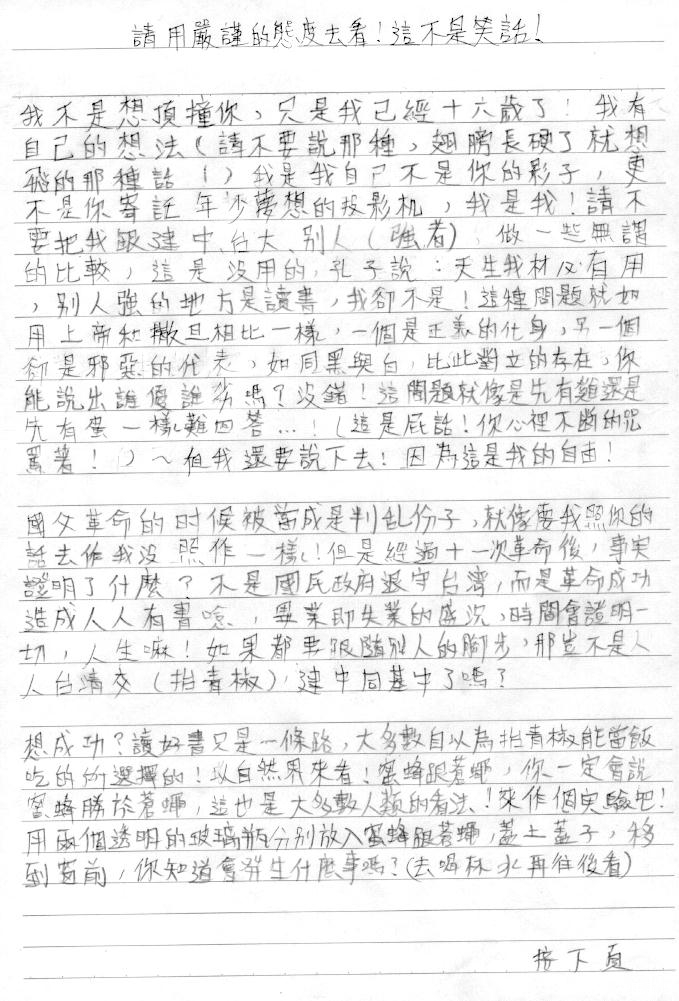 請用嚴謹的態度去看!這不是笑話!
我不是想頂撞你，只是我已經十六歲了!我有
自己的想法(請不要說那種，翅膀長硬了就想
飛的那種話!)我是我自己不是你的影子，更
不是你寄託年少夢想的投影机，我是我!請不
要把我跟建中、台大、別人(強者)，做一些無謂
的比較，這是没用的，孔子說:天生我材必有用
，別人強的地方是讀書，我卻不是!這種問題就如
用上帝和撒旦相比一樣，一個是正義的化身，另一個
卻是邪惡的代表，如同黑與白，比此對立的存在，你
能說出誰優誰劣嗎?沒錯!這問題就像是先有雞還是
先有蛋一樣難回答...!(這是屁話!你心裡不斷的咒
罵著!)~但我還要說下去!因為這是我的自由!
國父革命的时候被當成是判乱份子，就像要我照你的
話去作我没照作一樣!但是經過十一次革命後，事实
證明了什麼?不是國民政府退守台灣，而是革命成功
造成人人有書唸，畢業即失業的盛況，時間會證明一
切，人生嘛!如果都要跟隨別人的腳步，那豈不是人
人台清交(抬青椒)，建中同基中了嗎?
想成功?讀好書只是一條路，大多數自以為抬青椒能當飯
吃的所選擇的!以自然界來看!蜜蜂跟蒼蠅，你一定會說
蜜蜂勝於蒼蠅，這也是大多數人類的看法!來作個实驗吧!
用兩個透明的玻璃瓶分別放入蜜蜂跟蒼蠅，蓋上蓋子，移
到窗前，你知道會発生什麼事嗎?(去喝杯水再往後看)
接下頁